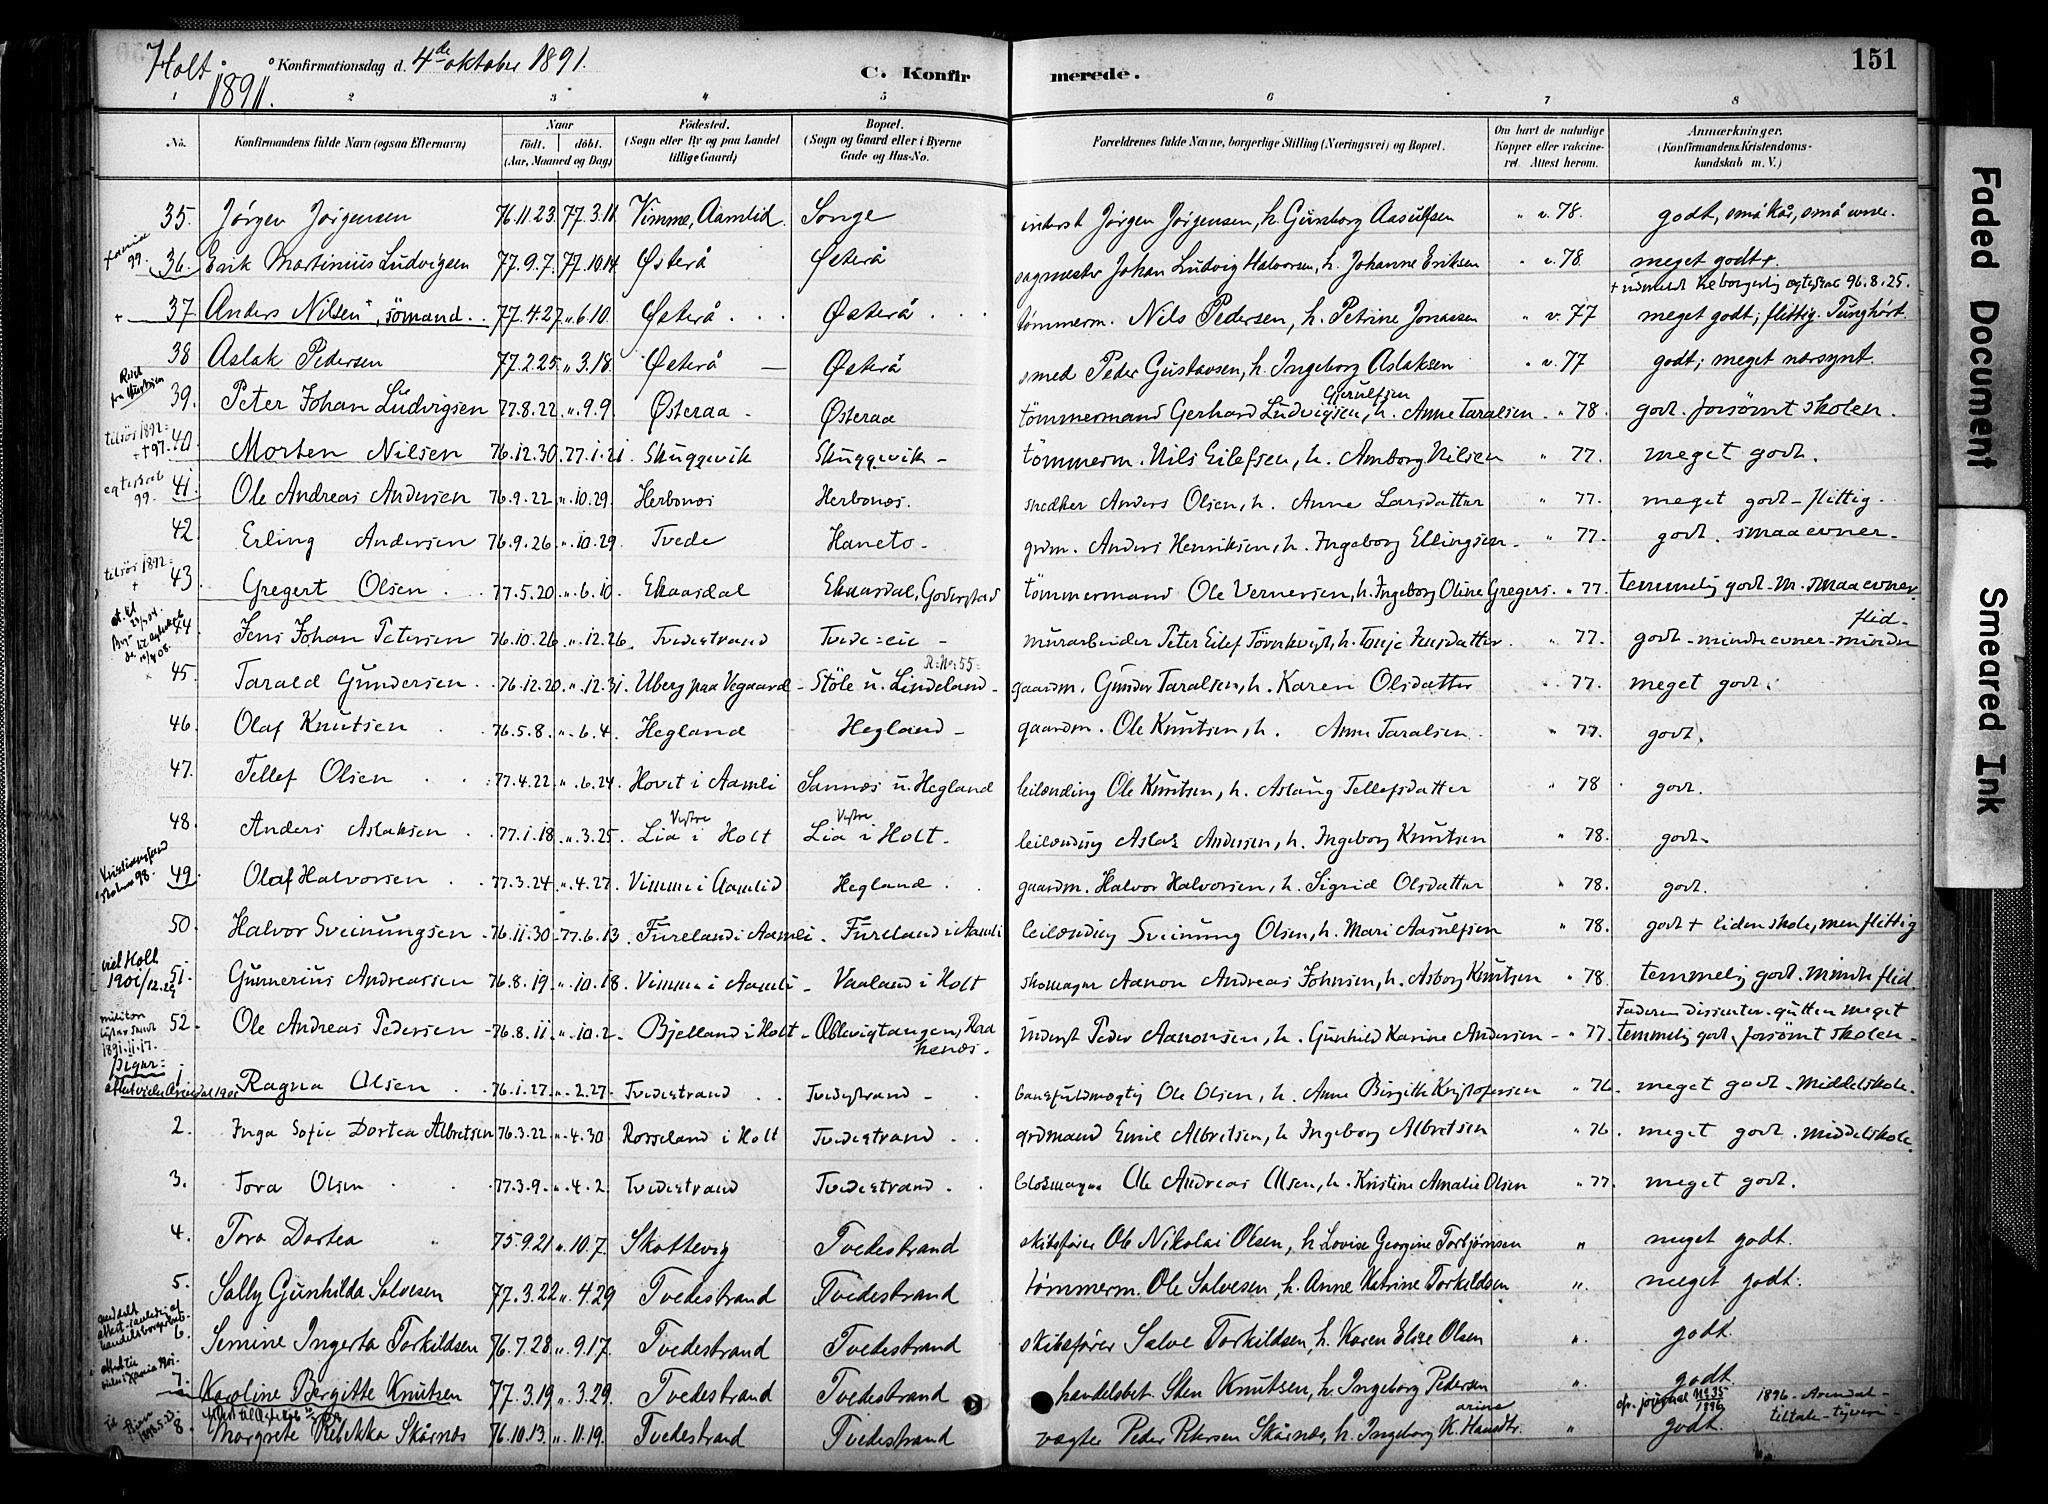 Holt 1891. Konfirmationsdag d. 4de oktober 1891. C. Konfirmerede. 151
1 2 3 4 5 6 7 8
No. Konfirmandens fulde Navn (ogsaa Efternavn) Naar Født. døbt. (Aar, Maaned og Dag) Fødested. (Sogn eller By og paa Landet tillige Gaard) Bopæl. (Sogn og Gaard eller i Byerne Gade og Hus-No.) Forældrenes fulde Navne, borgerlige Stilling (Næringsvei) og Bopæl. Om havt de naturlige Kopper eller vakcineret. Attest herom. Anmærkninger. (Konfirmandens Kristendomskundskab m. V.)
35. Jörgen Jörgensen 76.11.23. 77.3.11 Vimme, Aamlid Songe inderst Jörgen Jörgensen, h. Gunborg Aasulfsen " v. 78. godt, små kår, små evner.
36. Erik Martinius Ludvigsen 77.9.7. 77.10.14 Østerå Østerå sagmester Johan Ludvig Halvorsen, h. Johanne Eriksen " v. 78. meget godt+.
+ 37. Anders Nilsen+, sömand. 77.4.27 ". 6.10. Østerå Østerå tømmerm. Nils Pedersen, h. Petrine Jonassen " v. 77 meget godt; flittig. Tunghört.
38 Aslak Pedersen 77.2.25. ". 3.18. Østerå Østerå smed Peder Gustavsen, h. Ingeborg Aslaksen " v. 77 godt; meget nærsynt.
39. Peter Johan Ludvigsen 77.8.22. ". 9.9. Østeraa Østeraa tömmermand Gerhard Ludvigsen, h. Anne Taralsen " 78. godt. forsömt skolen.
40. Morten Nilsen 76.12.30. 77.1.21. Skuggevik Skuggevik tömmerm. Nils Eilefsen, h. Amborg Nilsen " 77. meget godt.
41. Ole Andreas Andersen 76.9.22. ". 10.29. Herbonæs Herbonæs. snedker Anders Olsen, h. Anne Larsdatter " 77. meget godt - flittig.
42. Erling Andersen 76.9.26. ". 10.29. Tvede Haneto grdm. Anders Henriksen, h. Ingeborg Ellingsen. " 77. godt. smaa evner.
43. Gregert Olsen 77.5.20. ". 6.10. Ekaasdal Ekaasdal, Goderstad tömmermand Ole Vernersen, h. Ingeborg Oline Gregers. " 77. temmelig godt. m. smaa evner.
44 Jens Johan Petersen 76.10.26. ". 12.26. Tvedestrand Tvede=eie murarbeider Peter Eilef Törnkvist, h. Tonje " 77. godt - mindre evner - mindre flid
45. Tarald Gundersen 76.12.20. ". 12.31. Uberg paa Vegaard Støle u. Lindeland gaardm. Gunder Taralsen, h. Karen Olsdatter " 77. meget godt.
46. Olaf Knutsen 76.5.8. ". 6.4. Hegland Hegland gaardm. Ole Knutsen, h. Anne Taralsen " 77. godt.
47. Tellef Olsen 77.4.22. ". 6.24. Hovet i Aamli Sannæs u. Hegland leilænding Ole Knutsen, h. Aslaug Tellefsdatter " 78 godt.
48. Anders Aslaksen 77.1.18. ". 3.25. Vestre Lia i Holt Vestre Lia i Holt. leilænding Aslak Andersen, h. Ingeborg Knutsen " 78. godt.
49. Olaf Halvorsen 77.3.24 ". 4.27. Vimme i Aamlid Hegland. gaardm. Halvor Halvorsen, h. Sigrid Olsdatter " 78. godt.
50. Halvor Sveinungsen 76.11.30. 77.6.13. Fureland i Aamli. Fureland i Aamli leilænding Sveinung Olsen, h. Mari Aasulfsen " 78. godt + liden skole, men flittig
51. Gunnerius Andreassen 76.8.19. ". 10.18. Vimme i Aamli Vaaland i Holt skomager Aanon Andreas Johnsen, h. Asborg Knutsen " 78. temmelig godt. mindre flid.
52. Ole Andreas Pedersen 76.8.11. ". 10.2. Bjelland i Holt inderst Peder Aanonsen, h. Gunhild Karine Andersen " 77. Faderen dissenter - gutten meget temmelig godt, forsömt skolen.
piger:
1 Ragna Olsen 76.1.27. ". 2.27. Tvedestrand Tvedestrand bankfuldmægtig Ole Olsen, h. Anne Birgithe Kristofersen " 76. meget godt. Middelskole.
2. Inga Sofie Dortea Albretsen 76.3.22. ". 4.30 Rosseland i Holt Tvedestrand. grdmand Emil Albretsen, h Ingeborg Albretsen " 76. meget godt. middelskole.
3. Tora Olsen 77.3.9. ". 4.2. Tvedestrand Tvedestrand. blokmager Ole Andreas Olsen, h. Kristine Amalie Olsen " 77. meget godt.
4. Tora Dortea " 75.9.21 ". 10.7. Skottevig Tvedestrand skibsfører Ole Nikolai Olsen, h Lovise Georgine Torbjörnsen " meget godt.
5. Sally Gunhilda Salvesen 77.3.22 ". 4.29 Tvedestrand Tvedestrand tömmerm. Ole Salvesen, h. Anne Katrine Torkildsen " meget godt.
6. Semine Ingerta Torkildsen 76.7.28. ". 9.17. Tvedestrand Tvedestrand skibsfører Salve Torkildsen, h. Karen Elise Olsen " godt.
7. Karoline Bergitte Knutsen 77.3.19. ". 3.29. Tvedestrand Tvedestrand handelsbet. Sten Knutsen, h. Ingeborg Pedersen " godt.
8 Margrete Rebekka Skårnæs 76.10.13. ". 11.19. Tvedestrand Tvedestrand vægter Peder Petersen Skårnæs, h. Ingeborg Karine Hansdtr. " godt.
cfr. journal No. 35 1896 1896 - Arendal - tiltale - tyveri
Faded Document
Smeared Ink